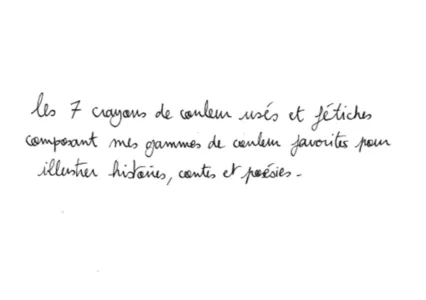 les 7 crayons de couleur usés et fétiches
composant mes gammes de couleur favorites pour
illustrer histoires, contes et poésies.